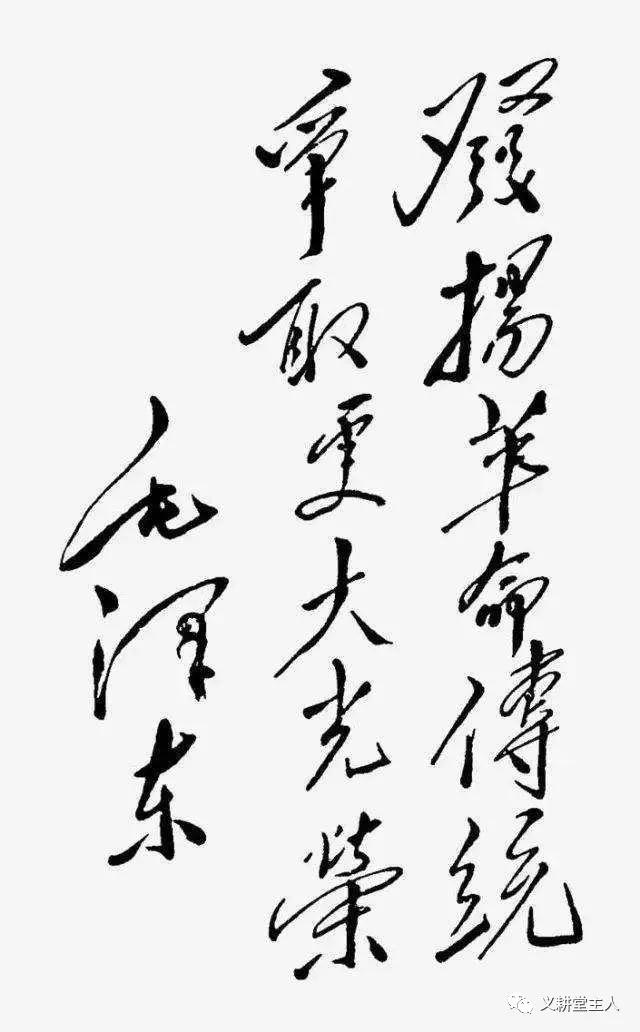 發揚革命傳統
爭取更大光榮
毛澤东
义耕堂主人